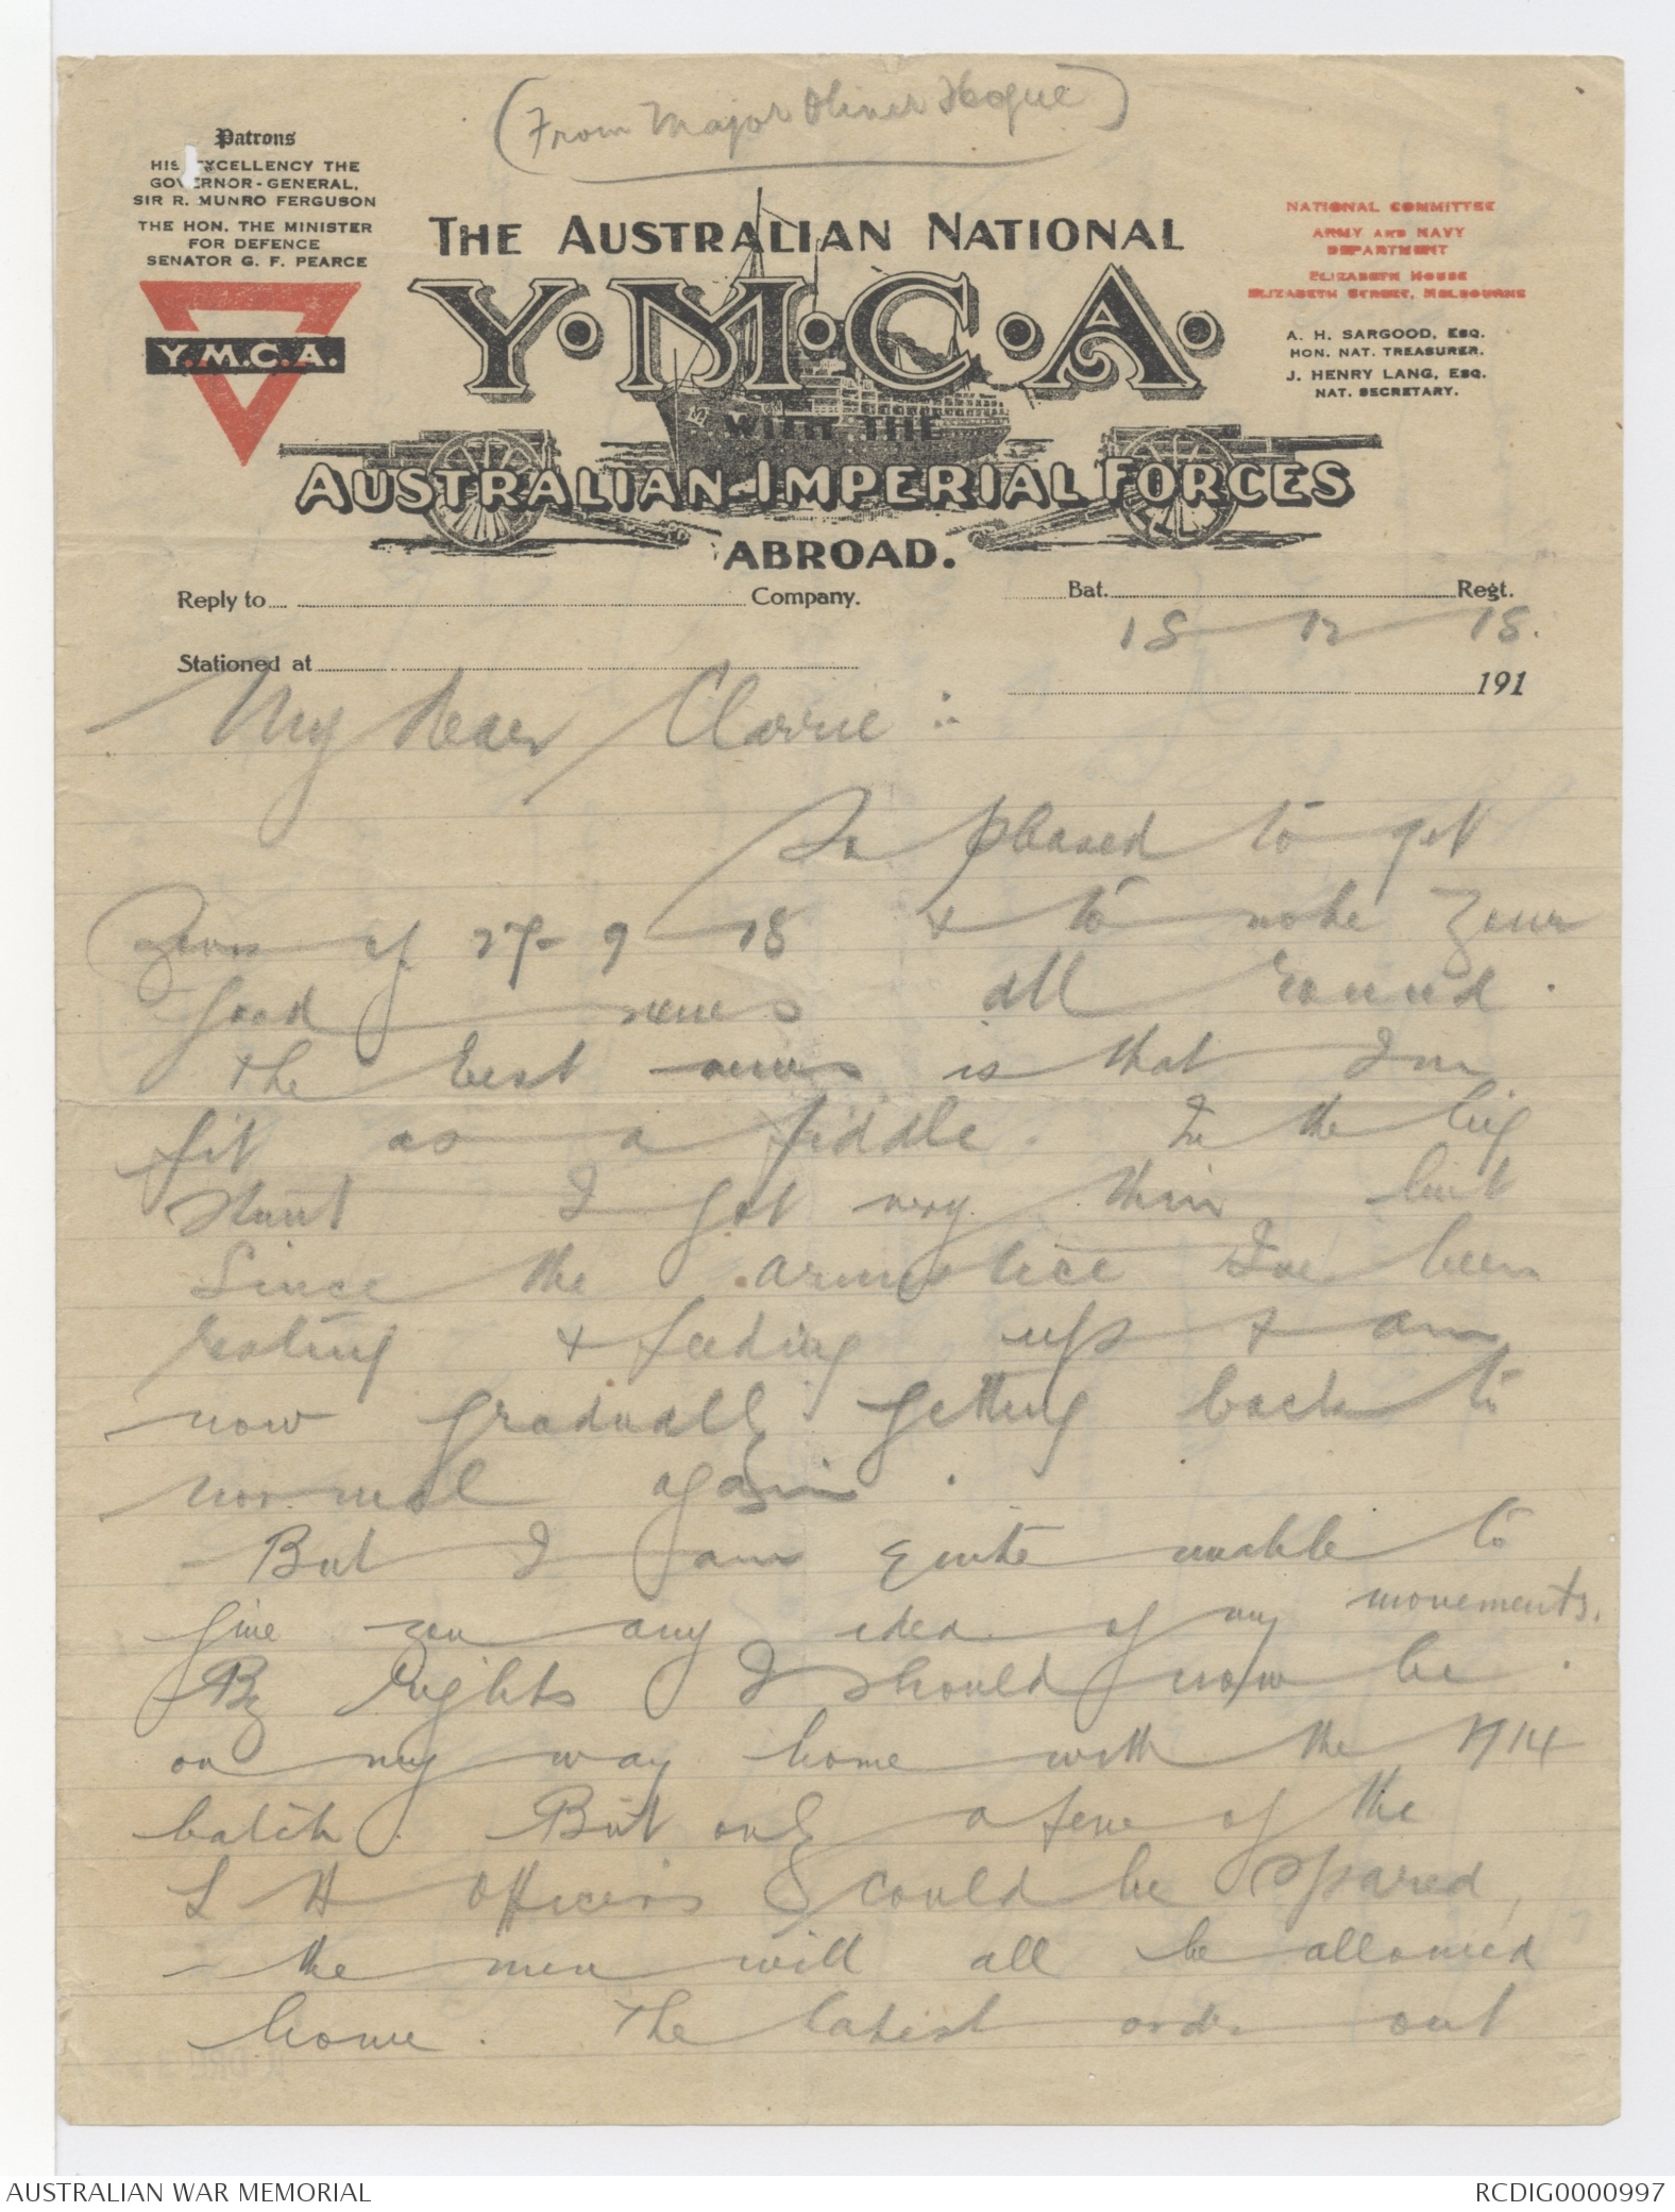 (From Major Oliver Hogue)
Patrons
HIS EXCELLENCY THE
GOVERNOR-GENERAL,
SIR R. MUNRO FERGUSON
THE HON. THE MINISTER
FOR DEFENCE
SENATOR G. F. PEARCE
Y.M.C.A.
THE AUSTRALIAN NATIONAL
Y·M·C·A·
WITH THE
AUSTRALIAN IMPERIAL FORCES
ABROAD.
NATIONAL COMMITTEE
ARMY AND NAVY
DEPARTMENT
ELIZABETH HOUSE
ELIZABETH STREET, MELBOURNE
A. H. SARGOOD, ESQ.
HON. NAT. TREASURER.
J. HENRY LANG, ESQ.
NAT. SECRETARY.
Reply to Company. Bat. Regt.
18 - 12 - 18.
Stationed at
191
My dear Clarrie :
So pleased to get
yours of 27-9-18 & to note your
good news all round.
The best news is that I'm
fit as a fiddle. In the big
stunt I got very thin but
since the armistice I've been
resting & feeding up & am
now gradually getting back to
normal again.
But I am quite unable to
give you any idea of my movements.
By rights I should now be
on my way home with the 1914
batch. But only a few of the
L H Officers could be spared,
- the men will all be allowed
home. The latest order out
AUSTRALIAN WAR MEMORIAL
RCDIG0000997